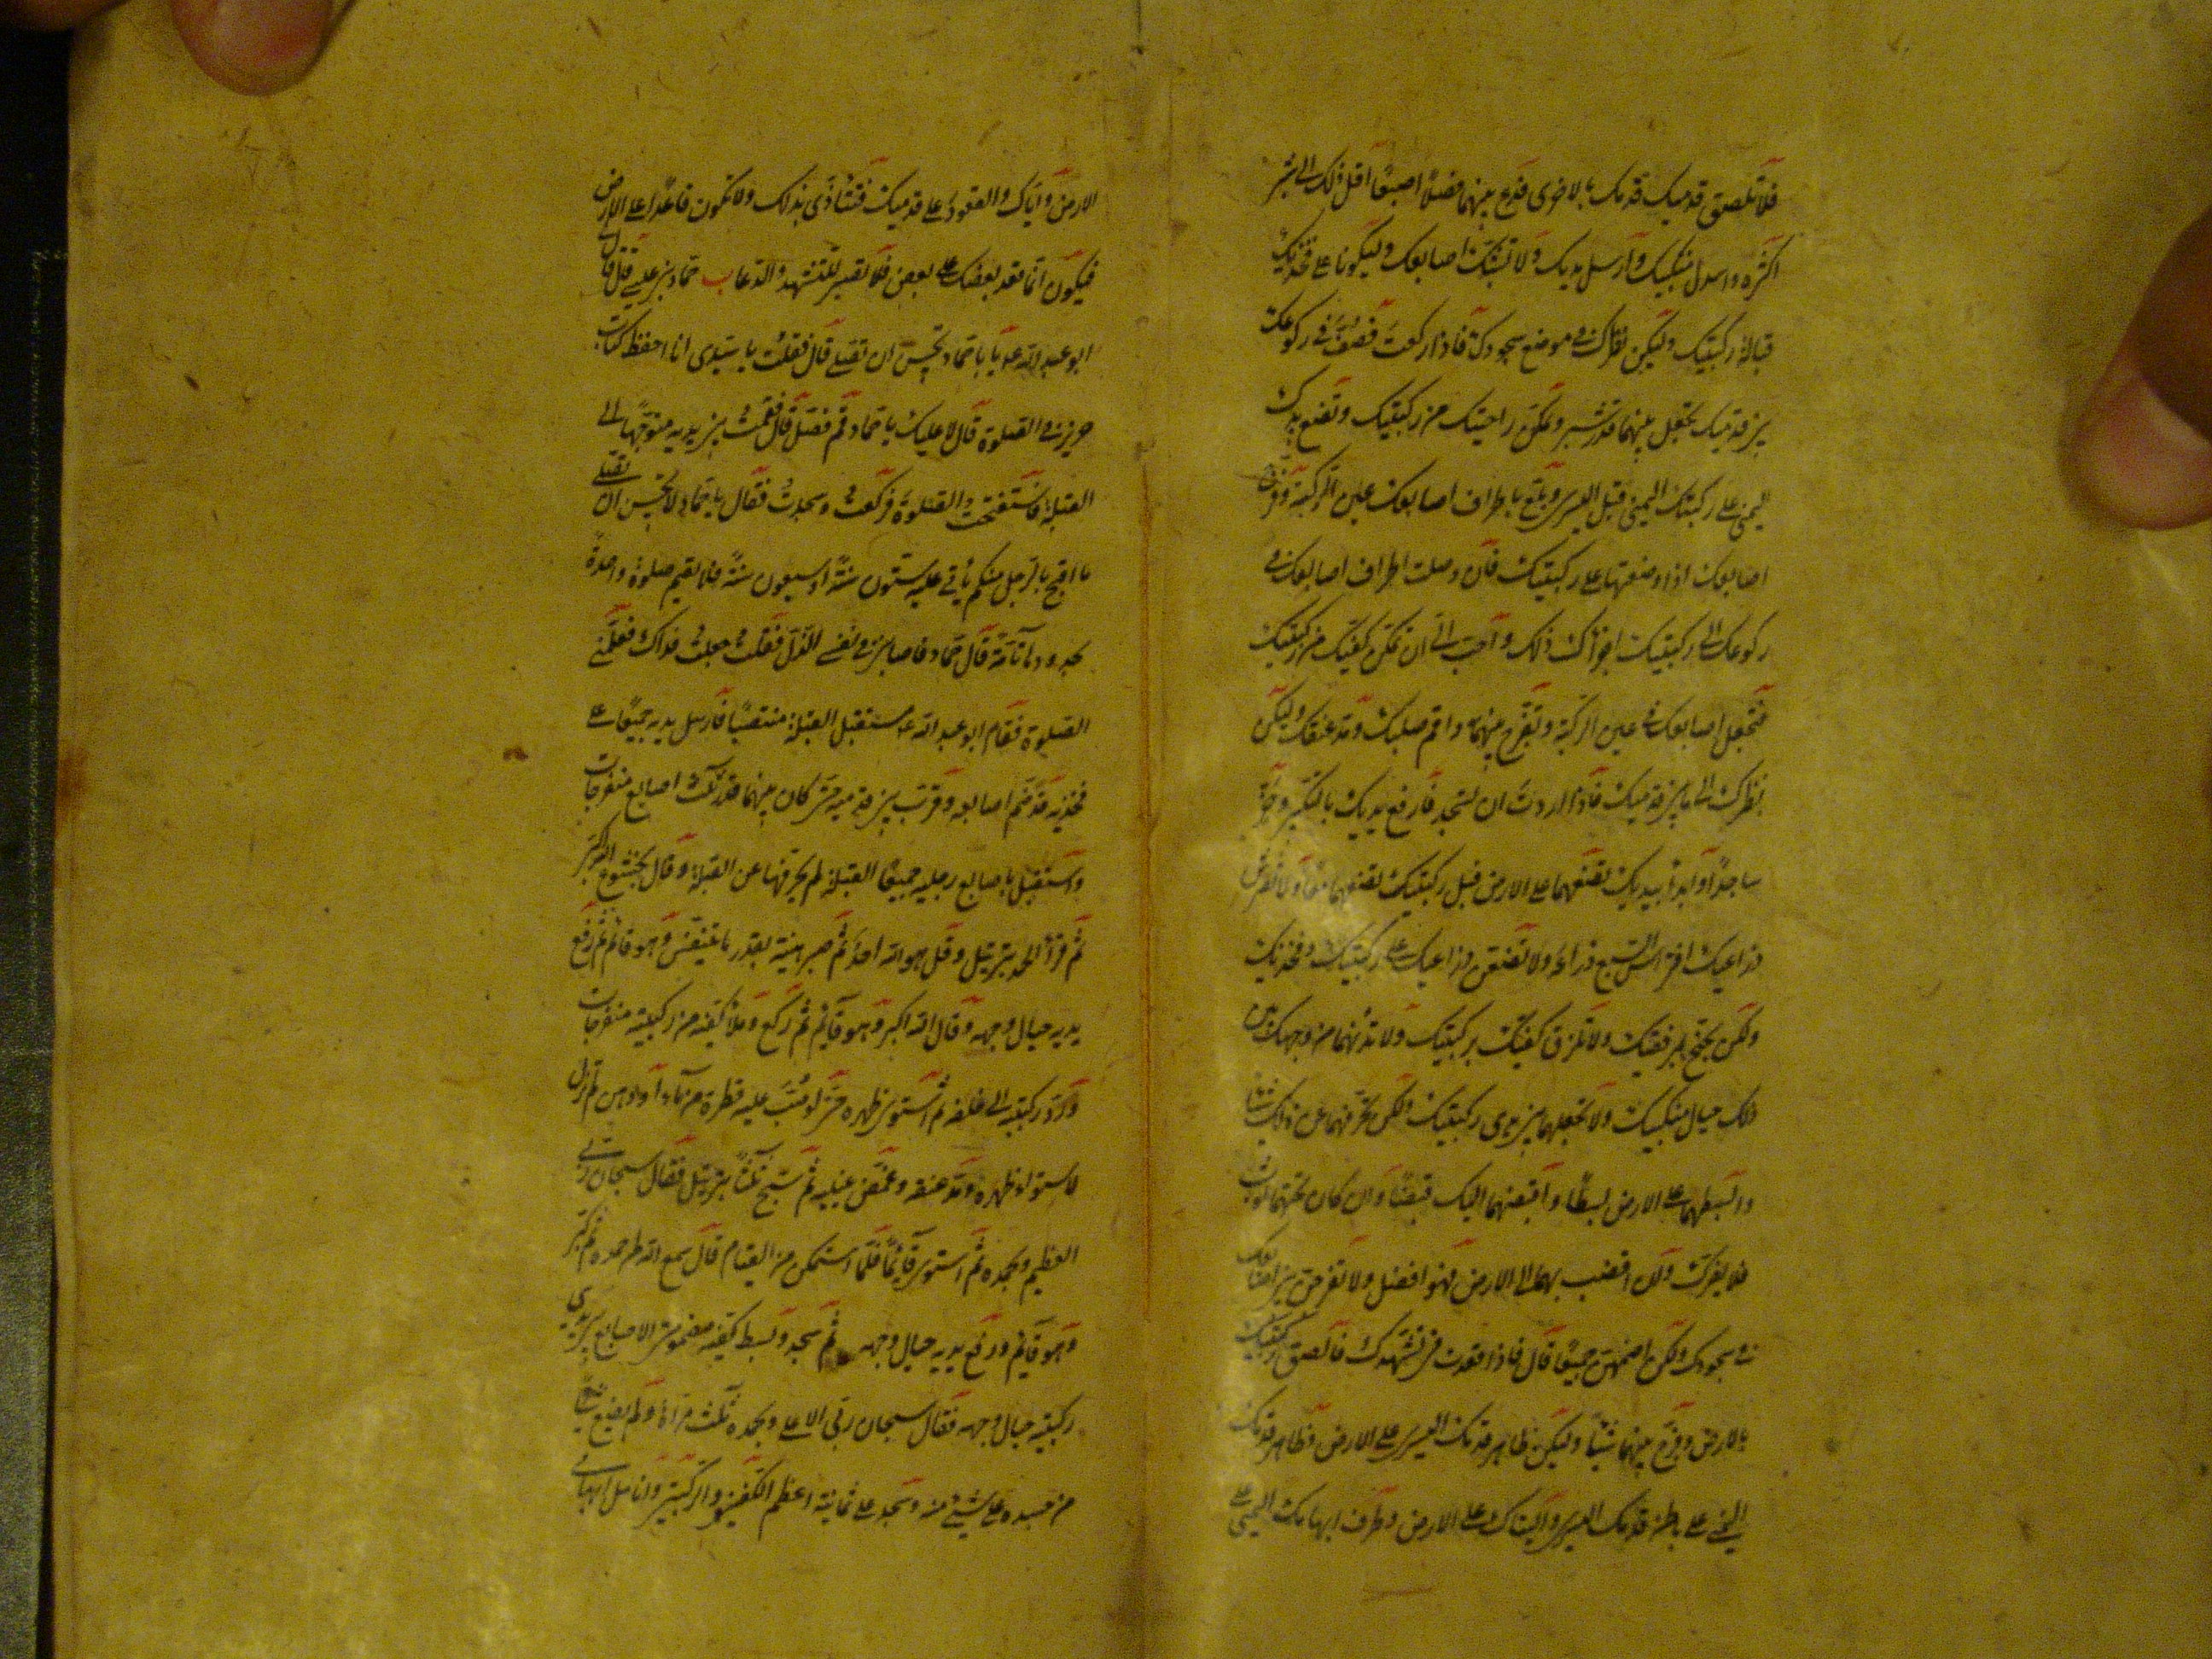 فلا تلصق قدميك قدمك بالاخرى فدع بينهما فصلاً اصبعًا اقل ذلك الى شبر
اكثره واسدل منكبيك وارسل يديك ولا تشبك اصابعك وليكونا على فخذيك
قبالة ركبتيك وليكن نظرك في موضع سجودك فاذا ركعت فصف في ركوعك
بين قدميك تجعل بينهما قدر شبر وتمكن راحتيك من ركبتيك وتضع يدك
اليمنى على ركبتك اليمنى قبل اليسرى وبلّع باطراف اصابعك عين الركبة وفرّج
اصابعك اذا وضعتها على ركبتيك فان وصلت اطراف اصابعك في
ركوعك الى ركبتيك اجزأك ذلك واحبّ الىّ ان تمكن كفيك من ركبتيك
فتجعل اصابعك في عين الركبة وتفرّج بينهما واقم صلبك ومدّ عنقك وليكن
نظرك الى ما بين قدميك فاذا اردت ان تسجد فارفع يديك بالتكبير وخرّ
ساجدًا وابدأ بيديك تضعهما على الارض قبل ركبتيك تضعهما معًا ولا تفترش
ذراعيك افتراش السبع ذراعه ولا تضعن ذراعيك على ركبتيك وفخذيك
ولكن تجنح بمرفقيك ولا تلزق كفيك بركبتيك ولا تدنهما من وجهك بين
ذلك حيال منكبيك ولا تجعلهما بين يدى ركبتيك ولكن تحرفهما عن ذلك شيئا
وابسطهما على الارض بسطًا واقبضهما اليك قبضًا وان كان تحتهما ثوب
فلا يضرك وان افضيت بهما الى الارض فهو افضل ولا تفرجن بين اصابعك
في سجودك ولكن اضممهن جميعًا قال فاذا قعدت في تشهدك فالصق ركبتيك
بالارض وفرّج بينهما شيئاً وليكن ظاهر قدمك اليسرى على الارض وظاهر قدمك
اليمنى على باطن قدمك اليسرى واليتاك على الارض وطرف ابهامك اليمنى على
الارض واياك والقعود على قدميك فتتأذى بذلك ولا تكون قاعدًا على الارض
فيكون انما قعد بعضك على بعض فلا تصبر للتشهد والدعاء حماد بن عيسى قال قال لى
ابو عبد الله ع يا حماد تحسن ان تصلى قال فقلت يا سيدى انا احفظ كتاب
حريز في الصلوة قال لا عليك يا حماد قم فصلّ قال فقمت بين يديه متوجهًا الى
القبلة فاستفتحت الصلوة فركعت وسجدت فقال يا حماد لا تحسن ان تصلى
ما اقبح بالرجل منكم يأتى عليه ستون سنةً او سبعون سنةً فلا يقيم صلوة واحدة
بحدودها تامّة قال حماد فاصابنى في نفسى الذلّ فقلت جعلت فداك فعلّمنى
الصلوة فقام ابو عبد الله ع مستقبل القبلة منتصبًا فارسل يديه جميعًا على
فخذيه قد ضمّ اصابعه وقرّب بين قدميه حتى كان بينهما قدر ثلث اصابع منفرجات
واستقبل باصابع رجليه جميعًا القبلة لم يحرفها عن القبلة وقال بخشوع الله اكبر
ثم قرأ الحمد بترتيل وقل هو الله احد ثم صبر هنيئة بقدر ما يتنفس وهو قائم ثم رفع
يديه حيال وجهه وقال الله اكبر وهو قائم ثم ركع وملأ كفيه من ركبتيه منفرجات
وردّ ركبتيه الى خلفه ثم استوى ظهره حتى لو صُبّ عليه قطرة من ماء او دهن لم تزل
لاستواء ظهره ومدّ عنقه وغمّض عينيه ثم سبّح ثلثًا بترتيل فقال سبحان ربى
العظيم وبحمده ثم استوى قائمًا فلما استمكن من القيام قال سمع الله لمن حمده ثم كبّر
وهو قائم ورفع يديه حيال وجهه ثم سجد وبسط كفيه مضمومتى الاصابع بين يدى
ركبتيه حيال وجهه فقال سبحان ربى الاعلى وبحمده ثلث مرات ولم يضع شيئًا
من جسده على شيء منه وسجد على ثمانية اعظم الكفين والركبتين وانامل ابهامى